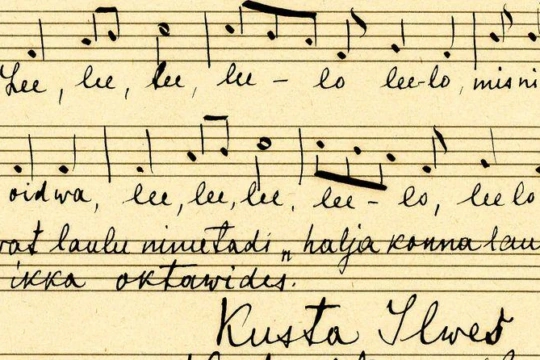 Lee, lee, lee, lee - lo lee-lo, mis ni
oidwa, lee, lee, lee, lee - lo, lee lo
wat laulu nimetadi „halja konna lau
ikka oktawides.
Kusta Ilwes